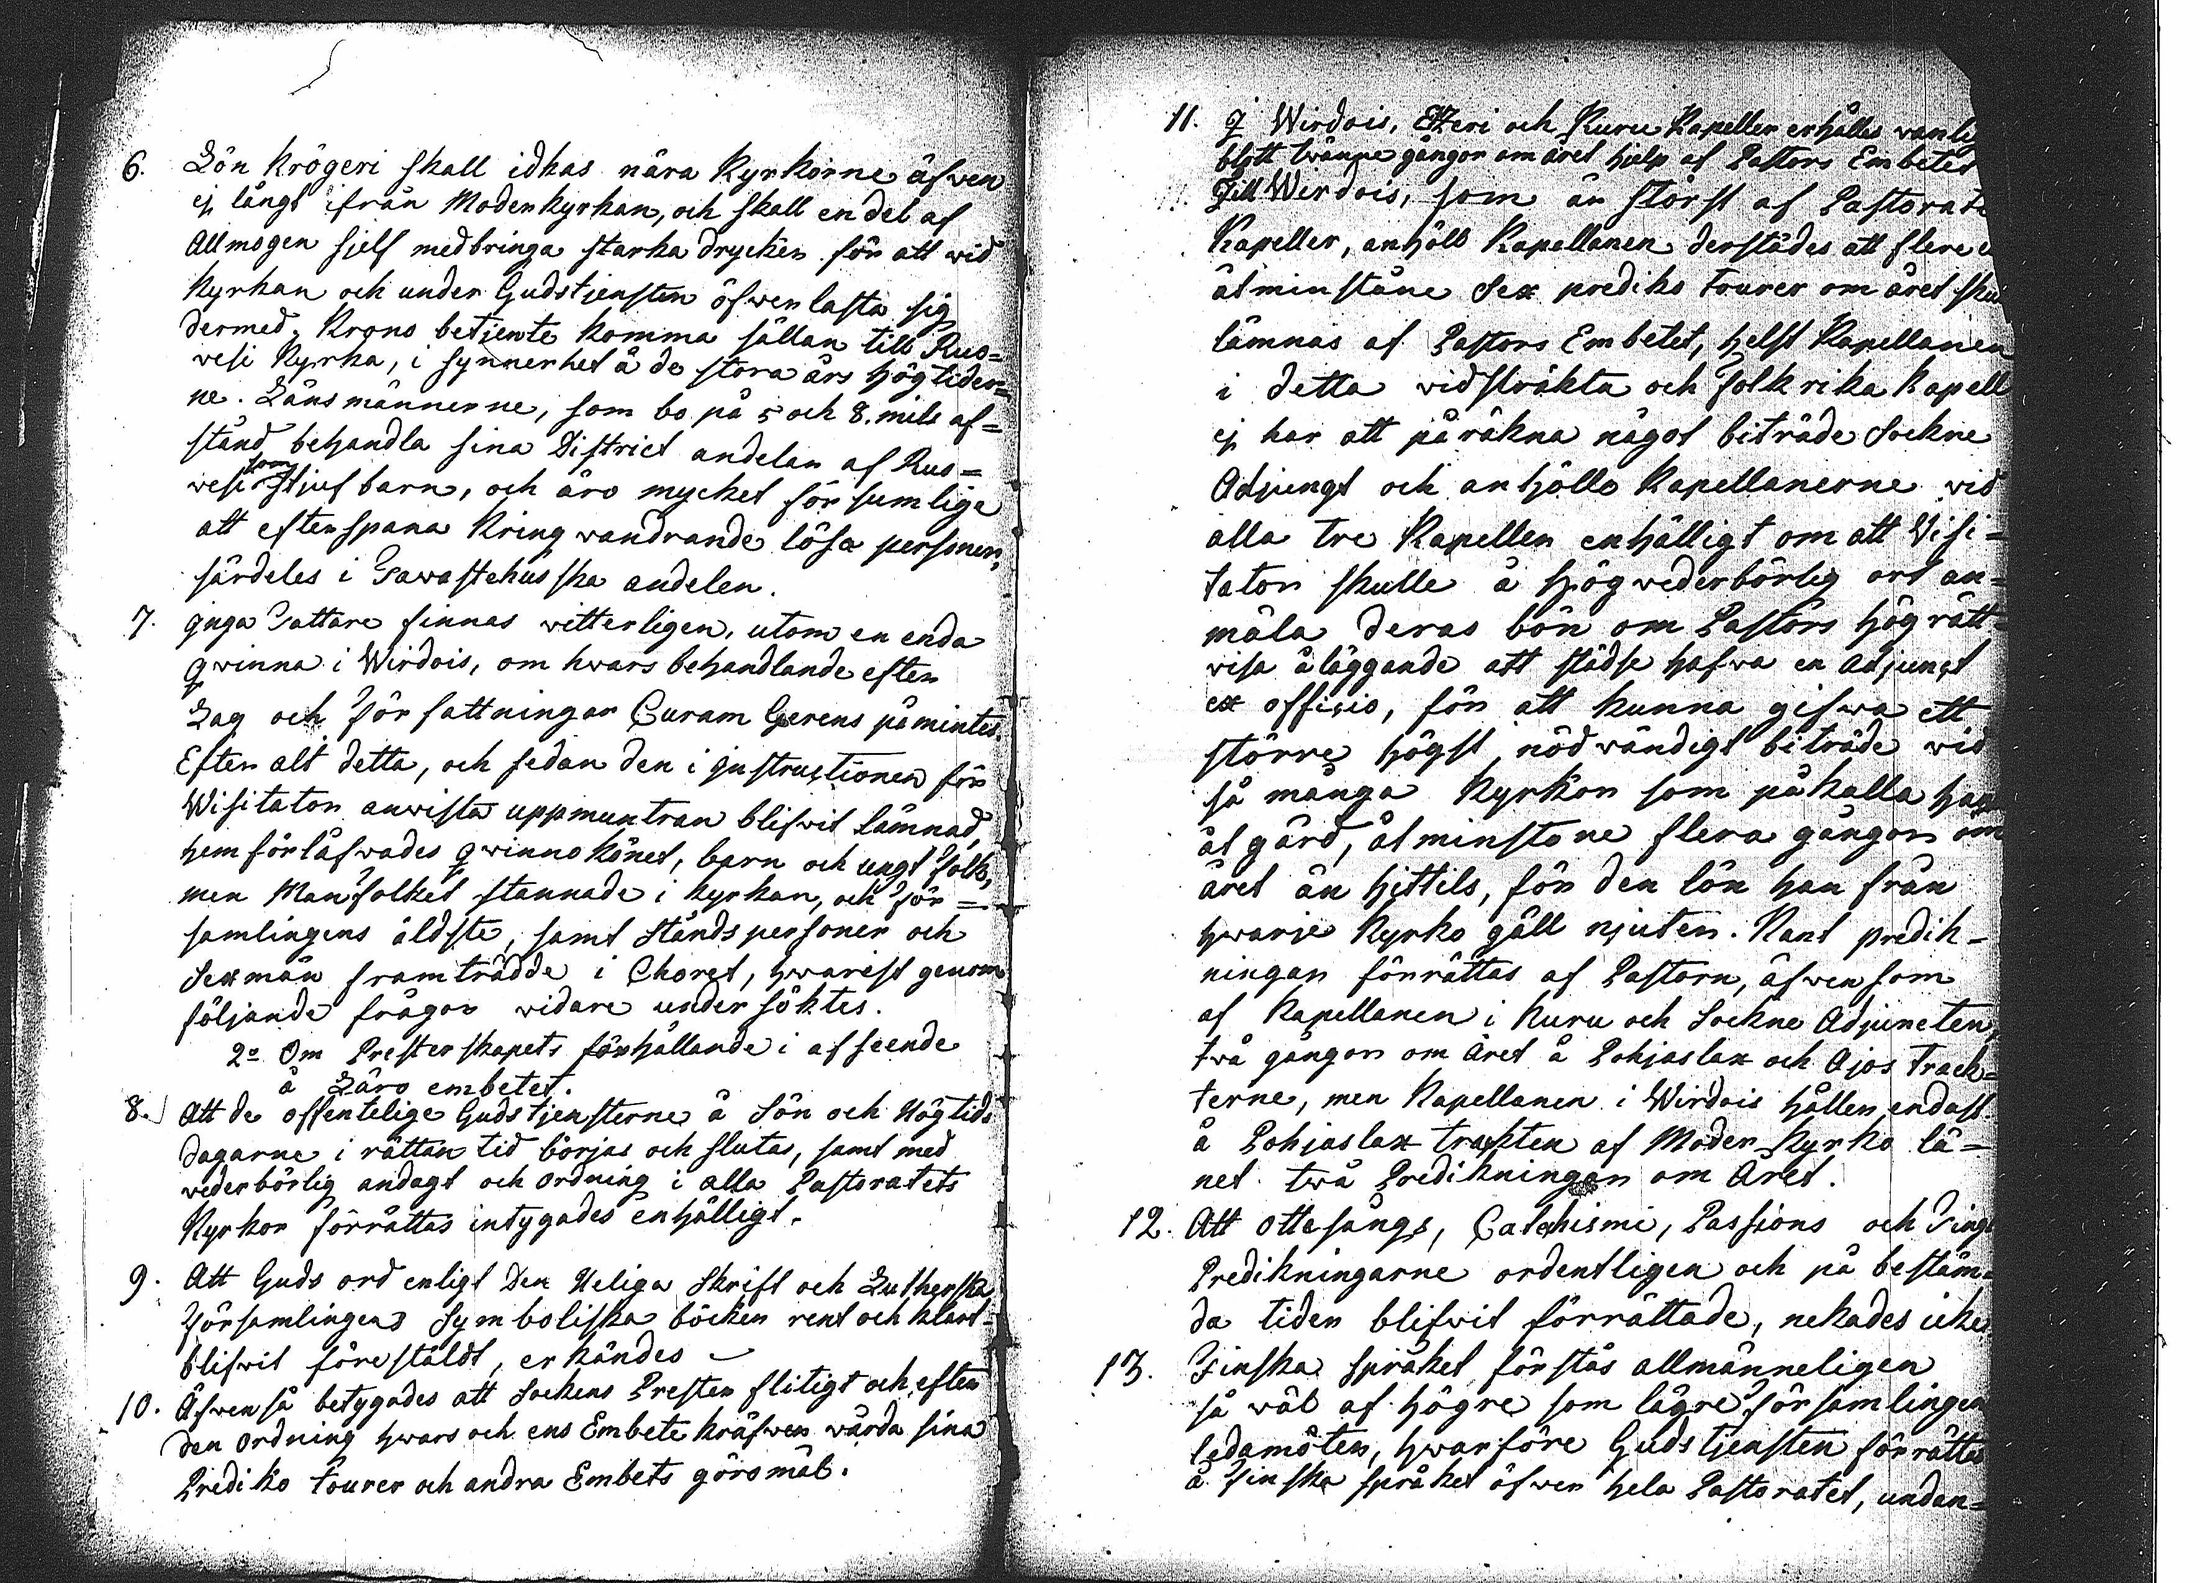 6. Lön krögeri skall idkas nära Kyrkorne äfwen
ej långt ifrån Moderkyrkan, och skall en del af
Allmogen sjelf medbringa starka drycker för att wid
Kyrkan och under Gudstjensten öfwerlasta sig
dermed. Krono betjente komma sällan till Ruo=
wesi Kyrka, i synnerhet å de stora års högtider=
ne. Länsmännerne, som bo på 5 och 8. mils af=
stånd behandla sina District andelar af Ruo=
wesi som stjuf barn, och äro mycket försumlige
att efterspana Kringwandrande lösa personer,
särdeles i Tawastehusska andelen.
7. Inga Tattare finnas witterligen, utom en enda
qwinna i Wirdois, om hwars behandlande efter
Lag och Författningar Curam Gerens påmintes.
Efter alt detta, och sedan den i Instructionen för
Wisitator anwista uppmuntran blifwit lämnad,
hemförläfwades qwinnokönet, barn och ungt folk,
men Manfolket stannade i kyrkan, och För=
samlingens äldste, samt Ståndspersoner och
Sexmän framträdde i Choret, hwarest genom
följande frågor widare undersöktes.
2o Om Presterskapets förhållande i afseende
å Läro embetet.
8. Att de offentelige Gudstjensterne å Sön och Högtids
dagarne i rättan tid börjas och slutas, samt med
wederbörlig andagt och ordning i alla Pastoratets
Kyrkor förrättas intygades enhälligt.
9. Att Guds ord enligt Den Heliga Skrift och Lutherska
Församlingens Symboliska böcker rent och klart
blifwit föreståldt, erkändes
10. Äfwen så betygades att Sockens Prester flitigt och efter
den ordning hwars och ens Embete kräfwer wårda sina
Prediko tourer och andra Embets göromål.
11. I Wirdois, Etzeri och Kuru Kapeller erhålles wanlig
blott twänne gånger om året hjelp af Pastors Embetet
Till Wirdois, som är störst af Pastorate
Kapeller, anhöll Kapellanen derstädes att flere e
åtminstone Sex prediko tourer om året sku
lämnas af Pastors Embetet, helst Kapellanen
i detta widsträkta och folkrika Kapell
ej har att påräkna något biträde Sockne
Adjungt och anhöllo Kapellanerne wid
alla tre Kapellen enhälligt om att Wisi=
tator skulle å högwederbörlig ort an=
mäla deras bön om Pastors högrätt=
wisa åläggande att städse hafwa en Adjunct
ex officio, för att kunna gifwa ett
större högst nödwändigt biträde wid
så många Kyrkor som påkalla hans
åtgärd, åtminstone flera gånger om
året än hittils, för den lön han från
hwarje Kyrko gäll njuter. Kant predik-
ningar förrättas af Pastorn, äfwensom
af Kapellanen i Kuru och Sockne Adjuncten,
twå gånger om Året å Pohjaslax och Ajos track=
terne, men Kapellanen i Wirdois håller endast
å Pohjaslax trakten af Moder Kyrko lä=
net twå Predikningar om Året.
12. Att ottesångs, Catchismi, Passions och Ting
Predikningarne ordentligen och på bestäm=
da tiden blifwit förrättade, nekades icke
13. Finska språket förstås allmänneligen
så wäl af högre som lägre församlingen
ledamöter, hwarföre Gudstjensten förrättas
å Finska språket öfwer hela Pastoratet, undan=